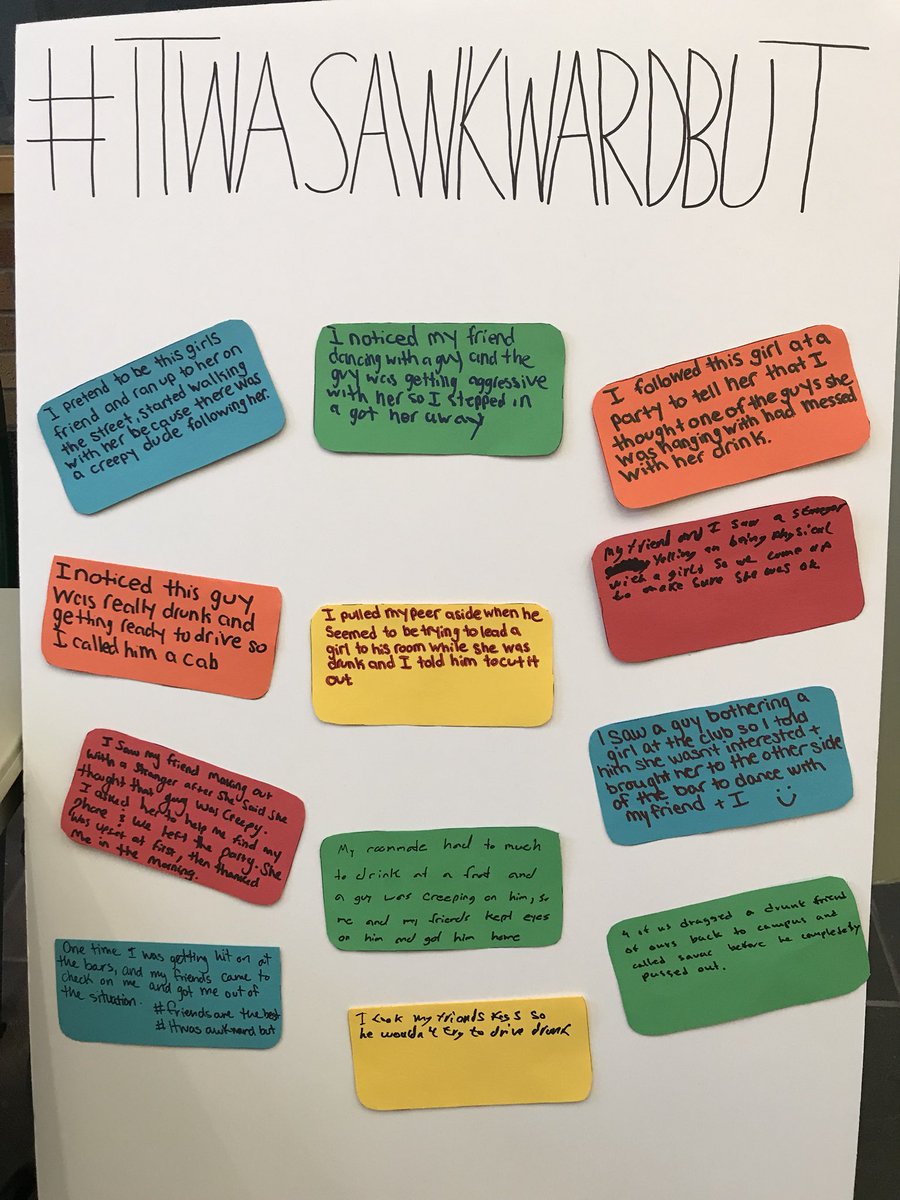 #ITWASAWKWARDBUT
I pretend to be this girls
friend and ran up to her on
the street, started walking
with her because there was
a creepy dude following her.
I noticed my friend
dancing with a guy and the
guy was getting aggressive
with her so I stepped in
a got her away
I followed this girl at a
party to tell her that I
thought one of the guys she
was hanging with had messed
with her drink.
I noticed this guy
was really drunk and
getting ready to drive so
I called him a cab
I pulled my peer aside when he
seemed to be trying to lead a
girl to his room while she was
drunk and I told him to cut it
out
my friend and I saw a stranger
yelling an being physical
with a girls so we came up
to make sure she was ok
I saw my friend making out
with a stranger after she said she
thought that guy was creepy.
I asked her to help me find my
phone & we left the party. She
was upset at first, then thanked
me in the morning.
My roommate had to much
to drink at a frat and
a guy was creeping on him, so
me and my friends kept eyes
on him and got him home
I saw a guy bothering a
girl at the club so I told
him she wasn't interested +
brought her to the other side
of the bar to dance with
my friend + I
One time I was getting hit on at
the bars, and my friends came to
check on me and got me out of
the situation.
#friends are the best
#itwas awkward but
I took my friends keys so
he wouldn't try to drive drunk
4 of us dragged a drunk friend
of ours back to campus and
called savac before he completely
passed out.